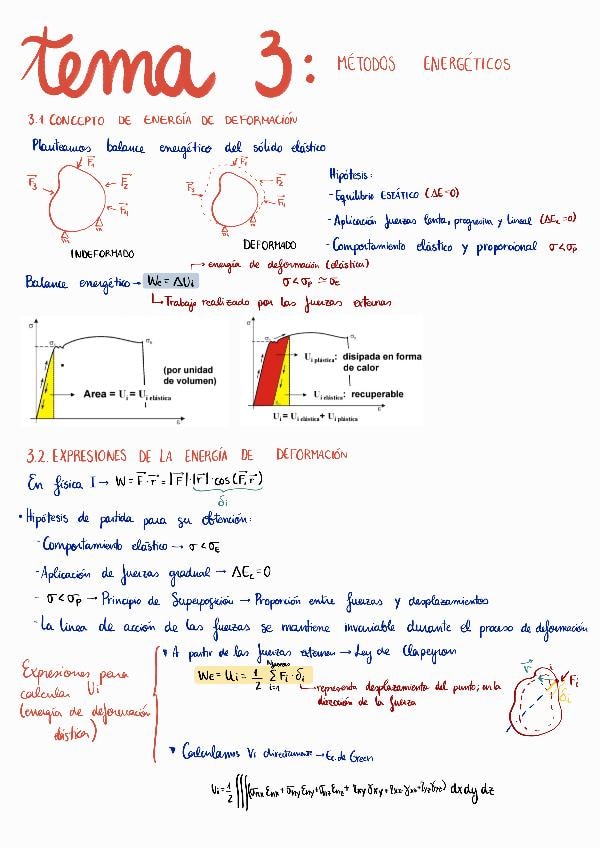 tema 3: MÉTODOS ENERGÉTICOS
3.1 CONCEPTO DE ENERGÍA DE DEFORMACIÓN
Planteamos balance energético del sólido elástico
F₁
F₂
F₃
F₄
INDEFORMADO
F₁
F₂
F₃
F₄
DEFORMADO
Hipótesis:
- Equilibrio ESTÁTICO (ΔE=0)
- Aplicación fuerzas lenta, progresiva y lineal (ΔEc=0)
- Comportamiento elástico y proporcional σ<σp
σ<σp ≃ σE
energía de deformación (elástica)
Balance energético → We = ΔUi
Trabajo realizado por las fuerzas externas
(por unidad
de volumen)
Area = Ui = Ui elástica
Ui plástica: disipada en forma
de calor
Ui elástica: recuperable
Ui = Ui elástica + Ui plástica
3.2. EXPRESIONES DE LA ENERGÍA DE DEFORMACIÓN
En física I → W = F · r = |F| · |r| · cos(F, r)
δi
• Hipótesis de partida para su obtención:
- Comportamiento elástico → σ<σE
- Aplicación de fuerzas gradual → ΔEc=0
- σ<σp → Principio de Superposición → Proporción entre fuerzas y desplazamientos
- La línea de acción de las fuerzas se mantiene invariable durante el proceso de deformación
Expresiones para
calcular Ui
(energía de deformación
elástica)
A partir de las fuerzas externas → Ley de Clapeyron
We = Ui = 1/2 Σ Fi · δi
i=1
representa desplazamiento del punto i en la
dirección de la fuerza
r
Fi
δi
Calculamos Vi directamente → Ec. de Green
Ui = 1/2 ∭(σnx εnx + σny εny + σnz εnz + τxy γxy + τxz γxz + τyz γyz) dx dy dz